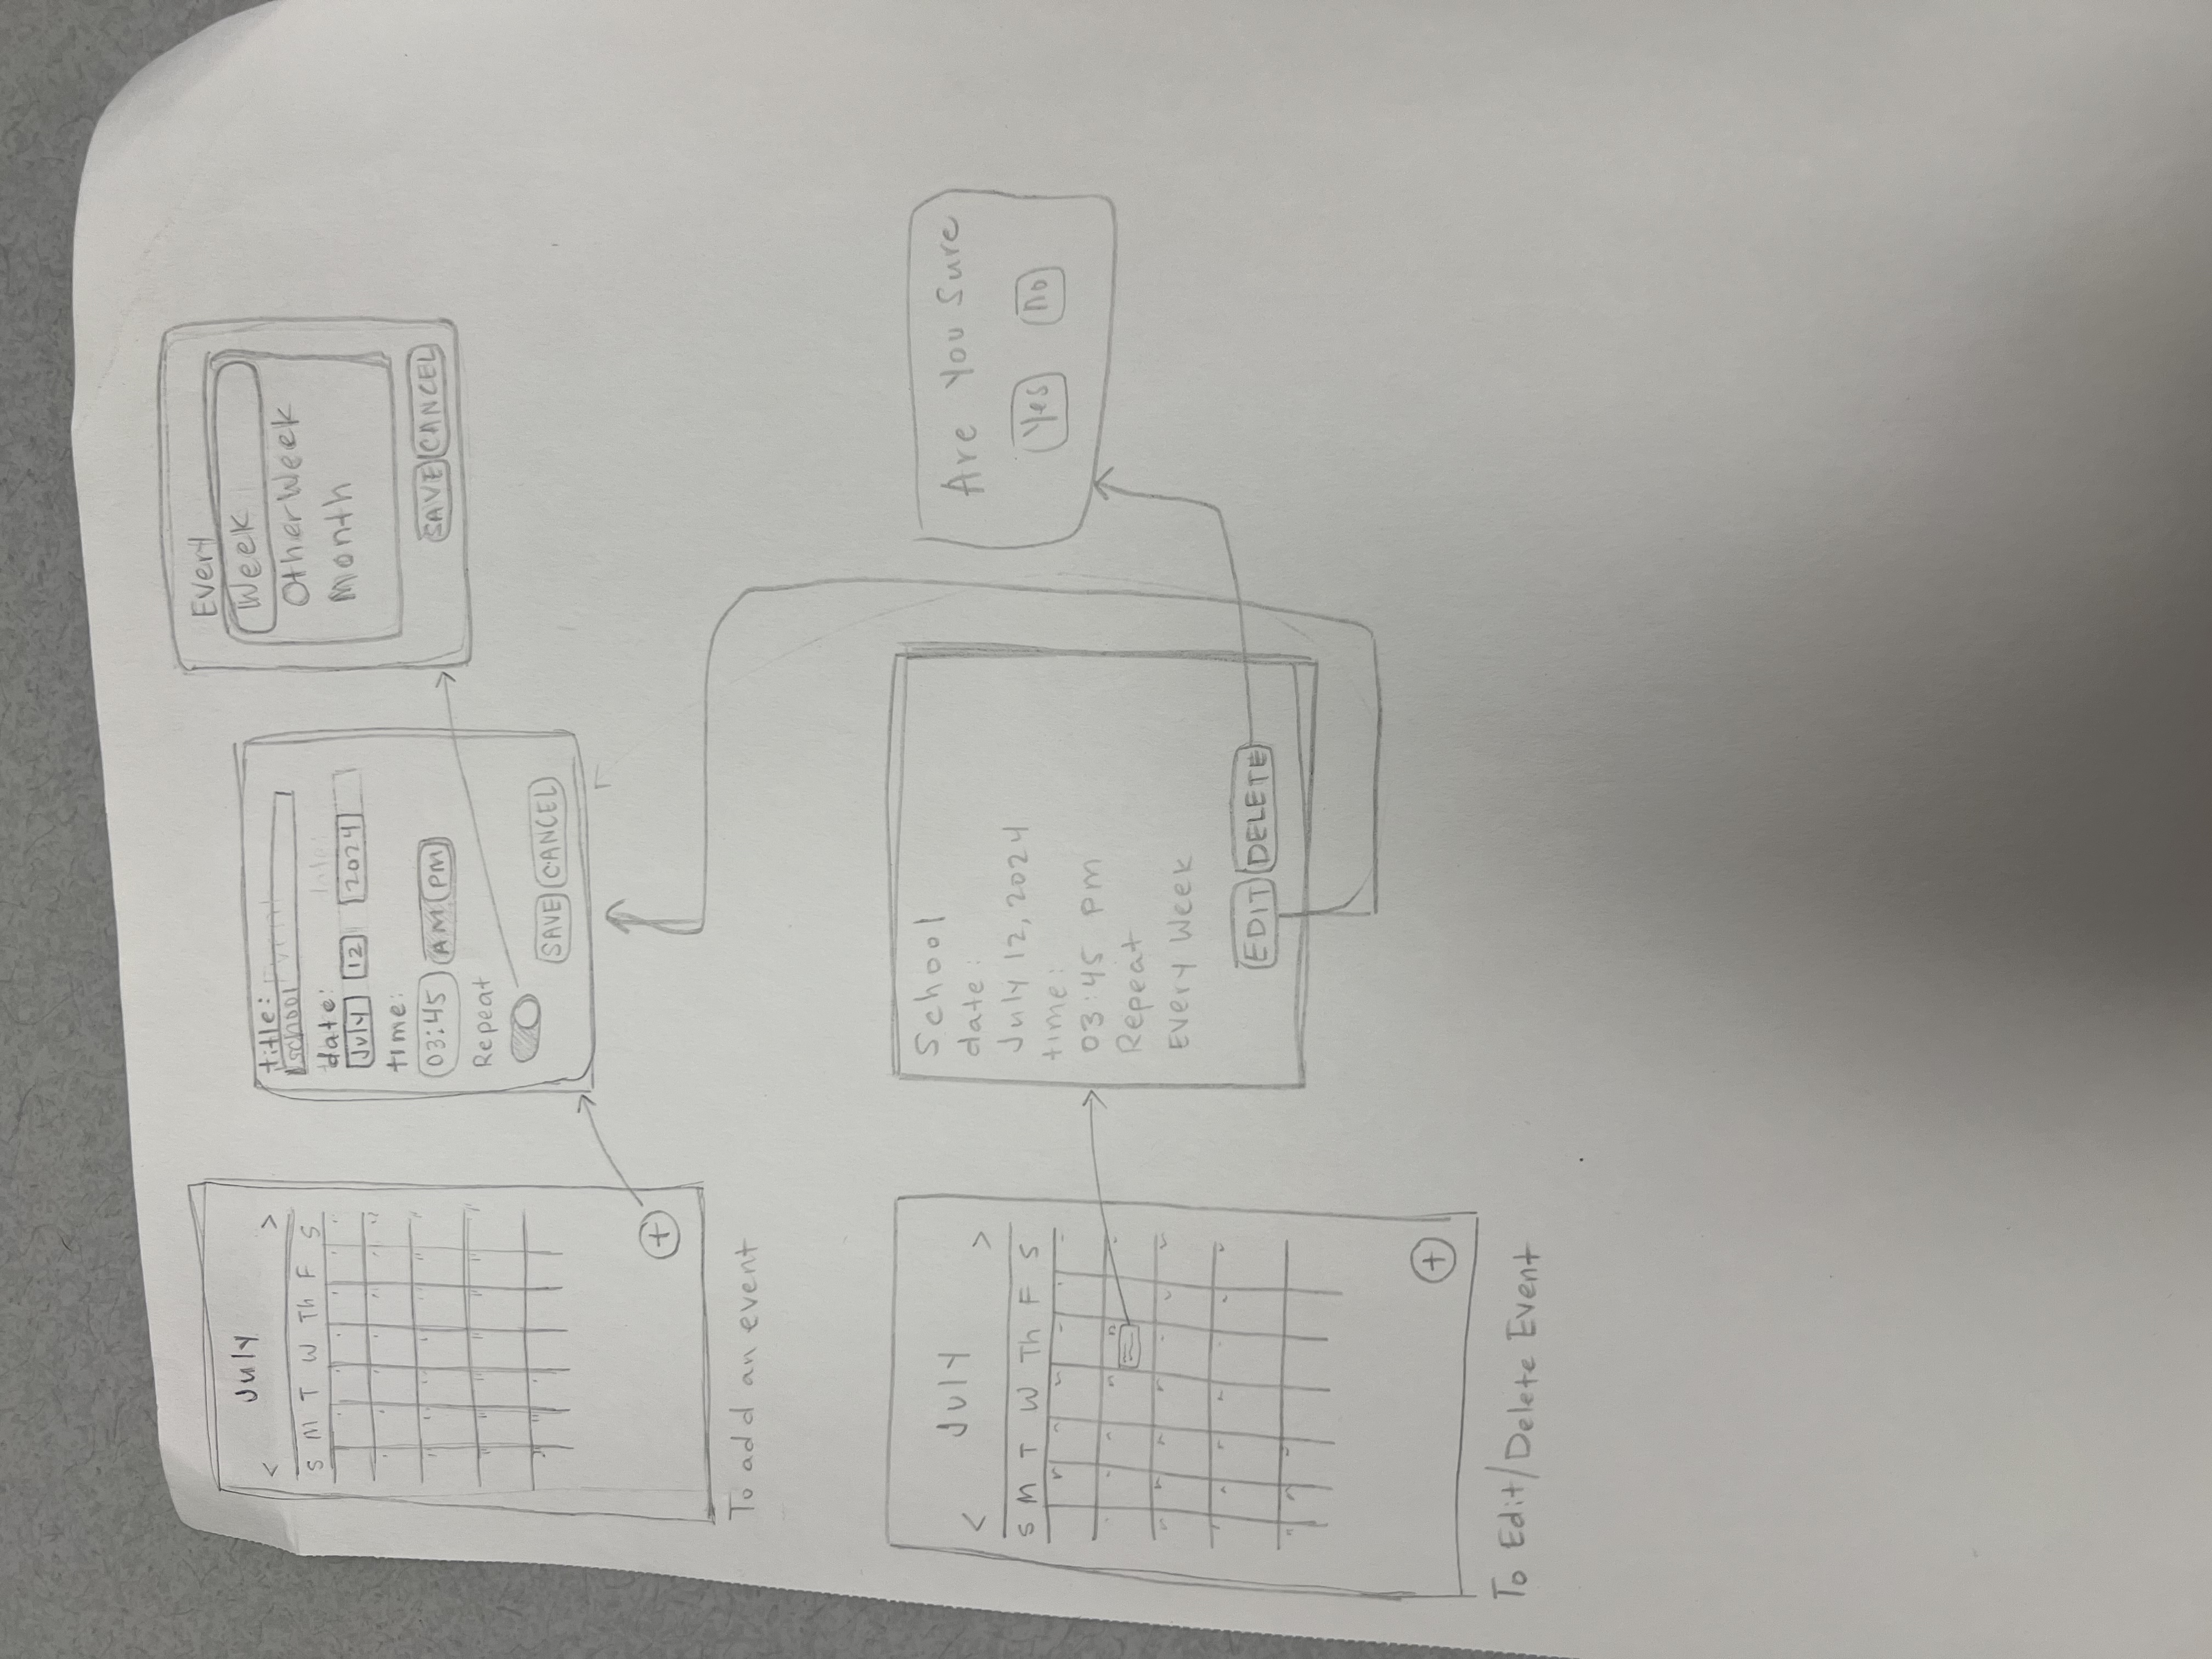 July
< >
S M T W Th F S
+
To add an event
title:
school
date:
July 12 2024
time:
03:45 AM PM
Repeat
SAVE CANCEL
Every
Week
Other Week
Month
SAVE CANCEL
July
< >
S M T W Th F S
+
To Edit/Delete Event
School
date:
July 12, 2024
time:
03:45 pm
Repeat
Every Week
EDIT DELETE
Are You Sure
Yes no